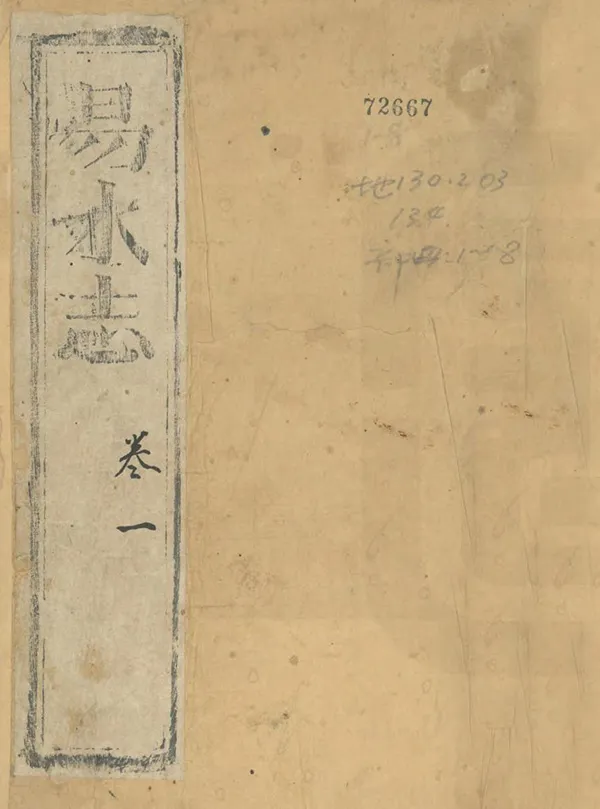 易水志
卷一
72667
1-8
地130.203
134